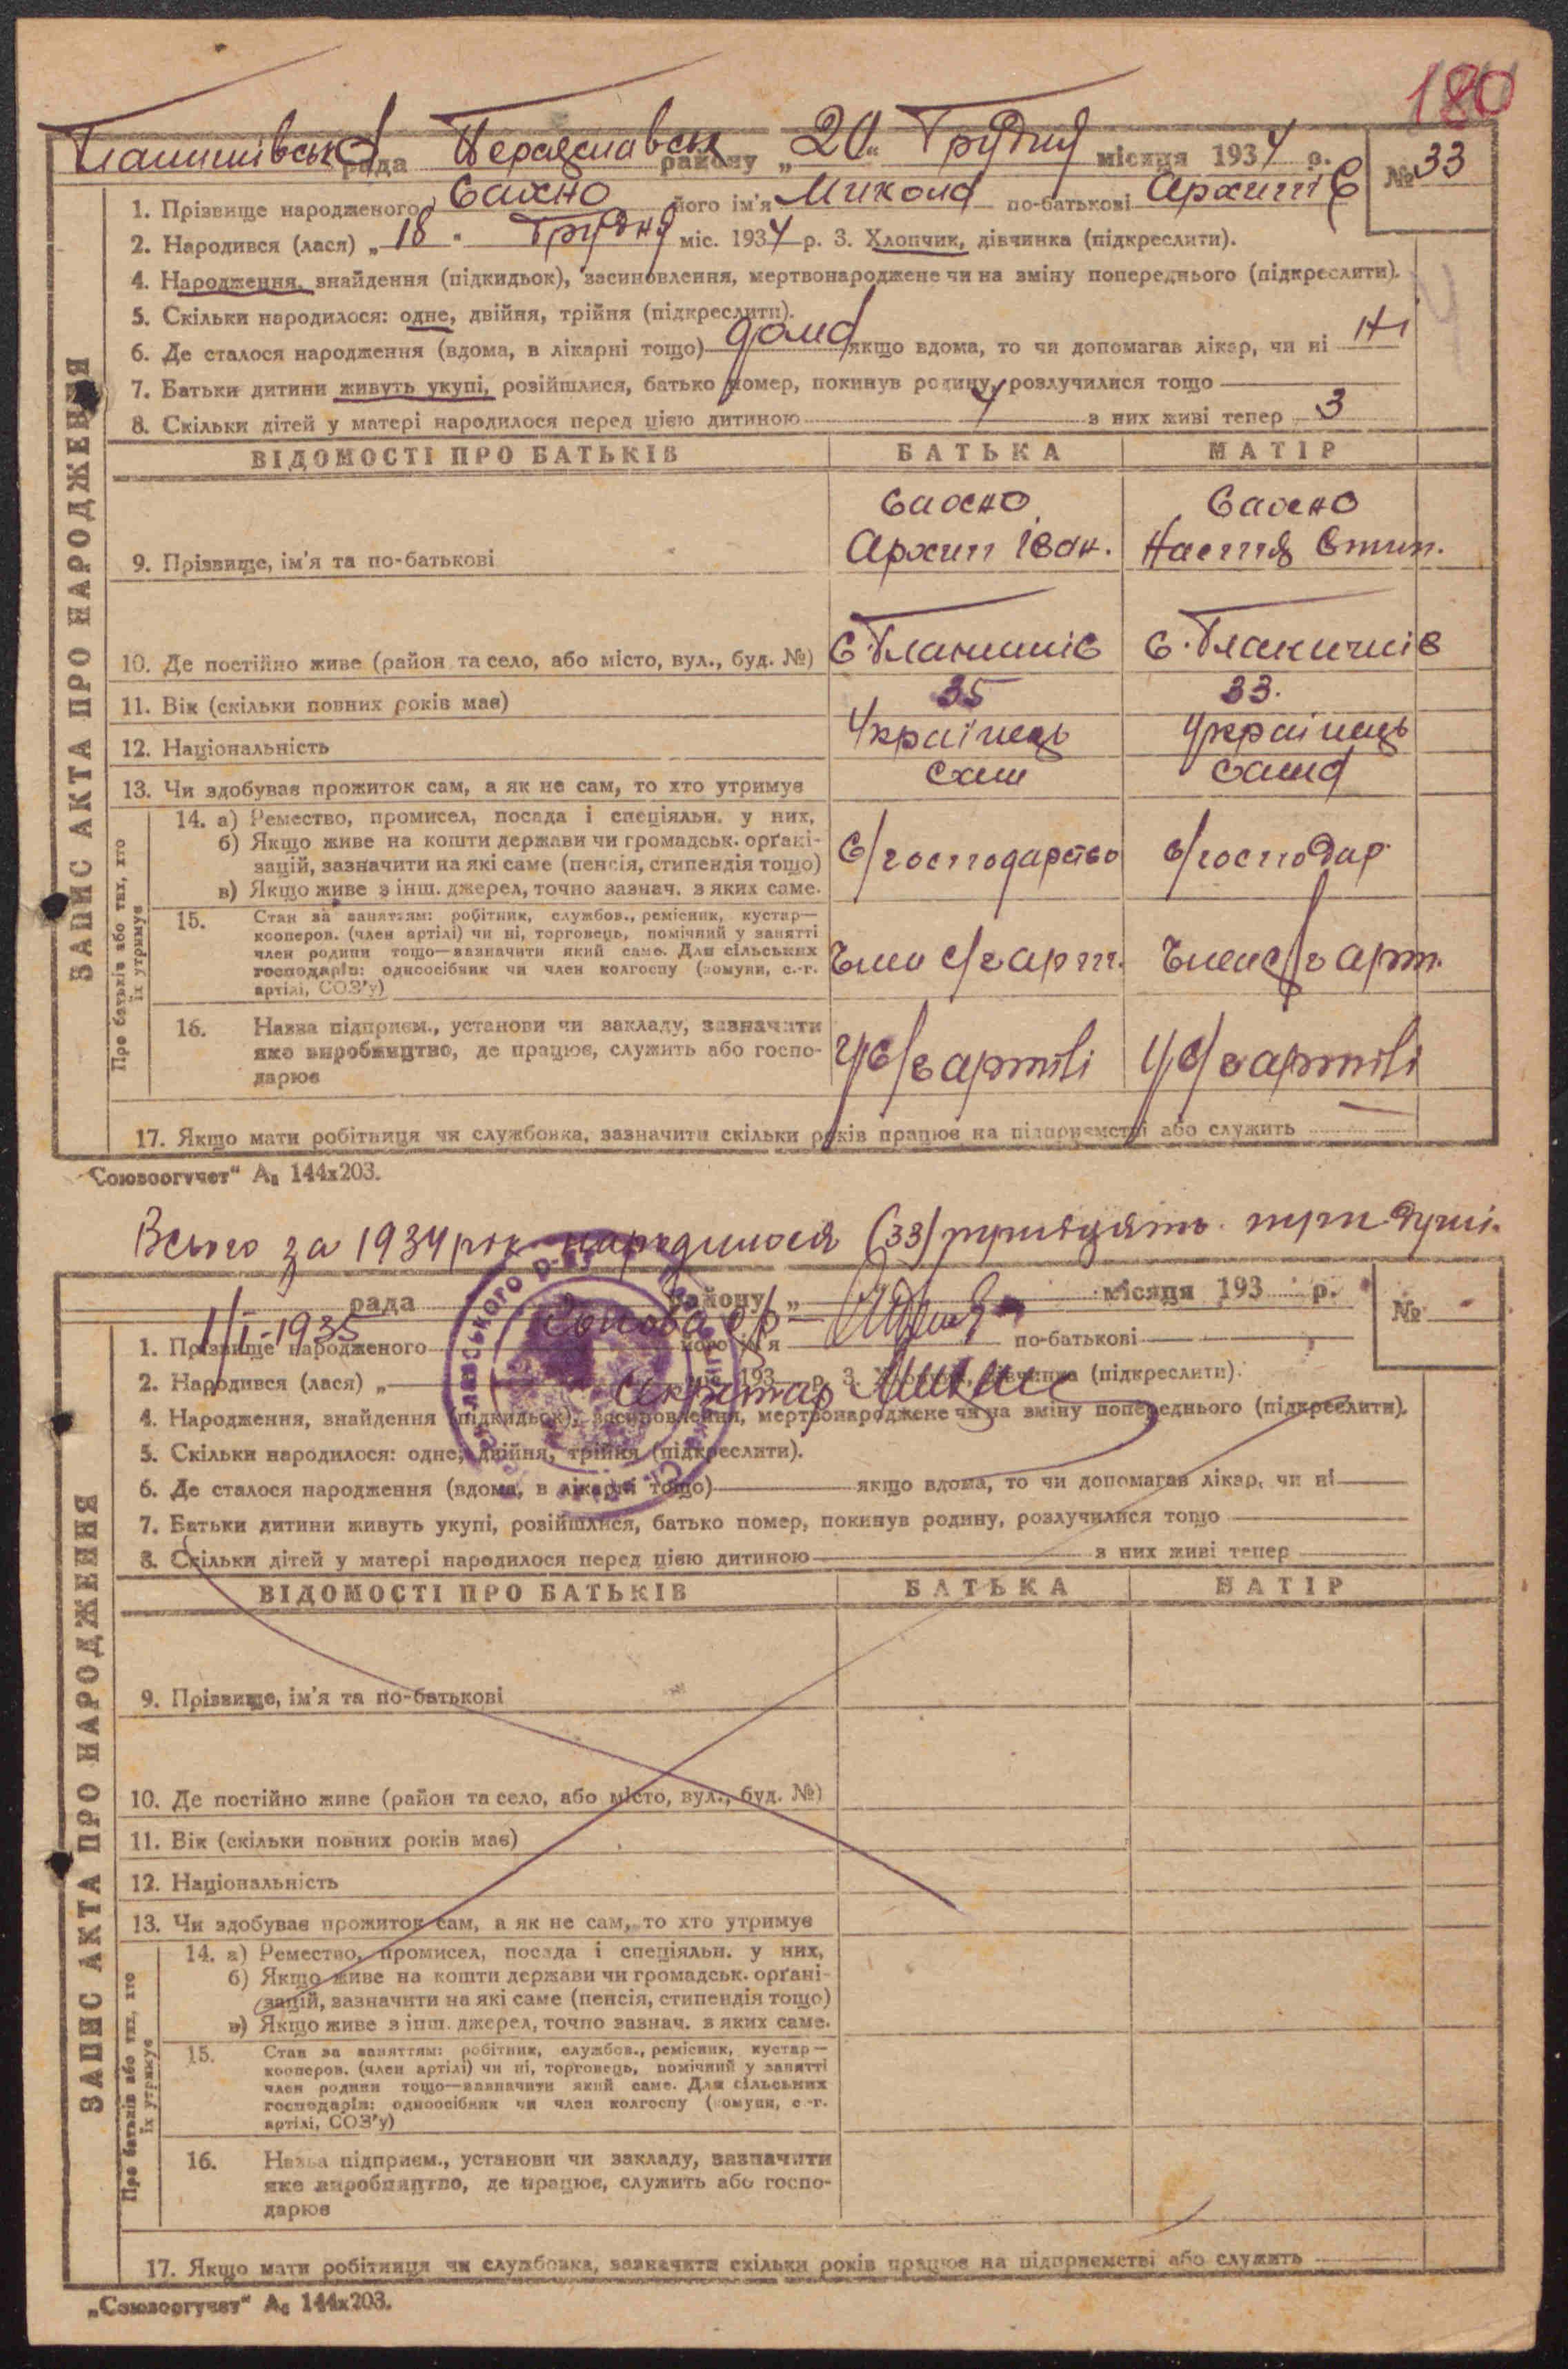 180
рада Переяславськ району „20“ Грудня місяця 1934 р. № 33
1. Прізвище народженого Сахно його ім'я Микола по-батькові Архипів
2. Народився (лася) „18“ Грудня міс. 1934 р. 3. Хлопчик, дівчинка (підкреслити).
4. Народження, знайдення (підкидьок), засиновлення, мертвонароджене чи на зміну попереднього (підкреслити).
5. Скільки народилося: одне, двійня, трійня (підкреслити).
6. Де сталося народження (вдома, в лікарні тощо) дома якщо вдома, то чи допомагав лікар, чи ні Ні
7. Батьки дитини живуть укупі, розійшлися, батько помер, покинув родину, розлучилися тощо
8. Скільки дітей у матері народилося перед цією дитиною 4 з них живі тепер 3
ЗАПИС АКТА ПРО НАРОДЖЕННЯ
ВІДОМОСТІ ПРО БАТЬКІВ БАТЬКА МАТІР
Сахно Сахно
9. Прізвище, ім'я та по-батькові Архип Іван. Настя
10. Де постійно живе (район та село, або місто, вул., буд. №)
11. Вік (скільки повних років має) 35 33.
12. Національність Українець Українець
13. Чи здобував прожиток сам, а як не сам, то хто утримує сам сама
Про батьків або тих, хто
їх утримує
14. а) Ремество, промисел, посада і спеціяльн. у них,
б) Якщо живе на кошти держави чи громадськ. орґані-
зацій, зазначити на які саме (пенсія, стипендія тощо) С/господарство с/господар
в) Якщо живе з інш. джерел, точно зазнач. з яких саме.
15. Стан за заняттям: робітник, службов., ремісник, кустар—
кооперов. (член артілі) чи ні, торговець, помічний у занятті
член родини тощо—зазначити який саме. Для сільських Член с/г арт. Член с/г арт.
господарів: одноосібник чи член колгоспу (комуни, с.-г.
артілі, СОЗ'у)
16. Назва підприєм., установи чи закладу, зазначити
яке виробництво, де працює, служить або госпо- У с/г артілі У с/г артілі
дарює
17. Якщо мати робітниця чи службовка, зазначити скільки років працює на підприємстві або служить
„Союзоргучет“ А₆ 144х203.
Всього за 1934 рік народилося (33) трицять три душі.
рада району „ місяця 193 р. №
1/I-1935 Голова с/р
1. Прізвище народженого його ім'я по-батькові
2. Народився (лася) „ міс. 193 р. 3. Хлопчик, дівчинка (підкреслити).
Секретар
4. Народження, знайдення (підкидьок), засиновлення, мертвонароджене чи на зміну попереднього (підкреслити).
5. Скільки народилося: одне, двійня, трійня (підкреслити).
6. Де сталося народження (вдома, в лікарні тощо) якщо вдома, то чи допомагав лікар, чи ні
7. Батьки дитини живуть укупі, розійшлися, батько помер, покинув родину, розлучилися тощо
8. Скільки дітей у матері народилося перед цією дитиною з них живі тепер
ЗАПИС АКТА ПРО НАРОДЖЕННЯ
ВІДОМОСТІ ПРО БАТЬКІВ БАТЬКА МАТІР
9. Прізвище, ім'я та по-батькові
10. Де постійно живе (район та село, або місто, вул., буд. №)
11. Вік (скільки повних років має)
12. Національність
13. Чи здобував прожиток сам, а як не сам, то хто утримує
Про батьків або тих, хто
їх утримує
14. а) Ремество, промисел, посада і спеціяльн. у них,
б) Якщо живе на кошти держави чи громадськ. орґані-
зацій, зазначити на які саме (пенсія, стипендія тощо)
в) Якщо живе з інш. джерел, точно зазнач. з яких саме.
15. Стан за заняттям: робітник, службов., ремісник, кустар—
кооперов. (член артілі) чи ні, торговець, помічний у занятті
член родини тощо—зазначити який саме. Для сільських
господарів: одноосібник чи член колгоспу (комуни, с.-г.
артілі, СОЗ'у)
16. Назва підприєм., установи чи закладу, зазначити
яке виробництво, де працює, служить або госпо-
дарює
17. Якщо мати робітниця чи службовка, зазначити скільки років працює на підприємстві або служить
„Союзоргучет“ А₆ 144х203.